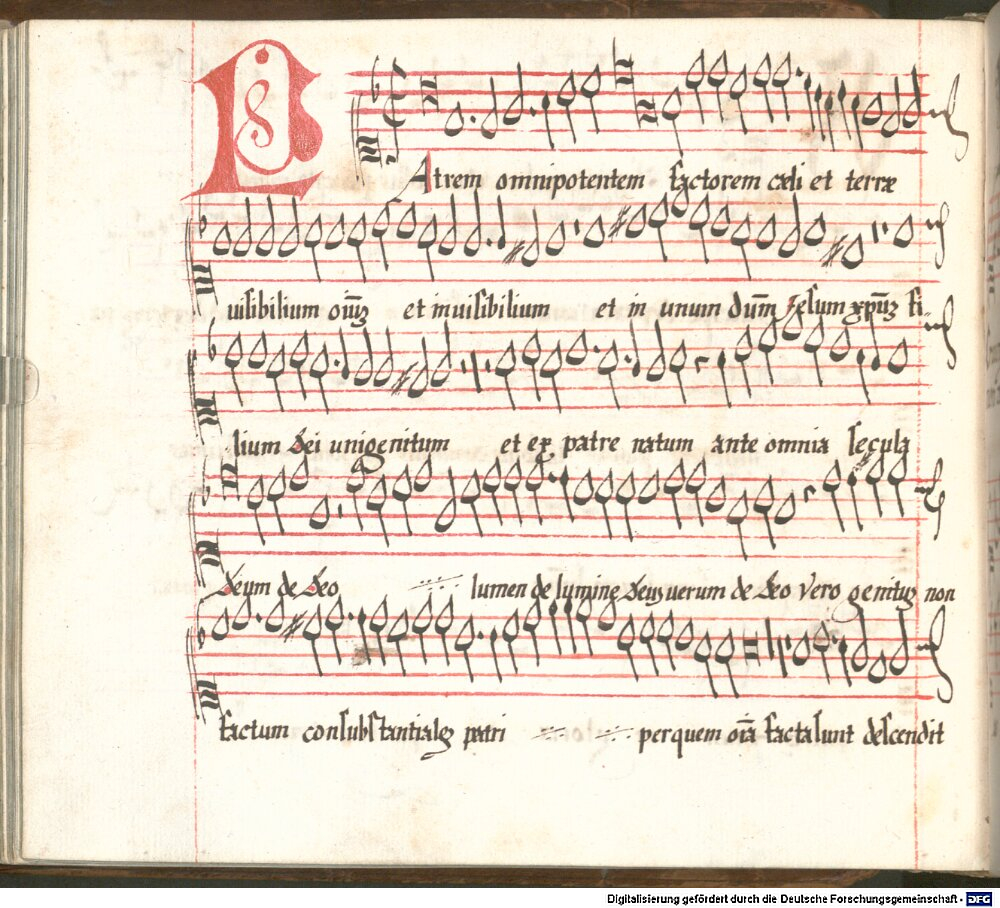 PAtrem omnipotentem factorem cæli et terræ
uisibilium oĩuȝ et inuisibilium et in unum dum̃ Jesum xpm̃ȝ fi-
lium dei unigenitum et ex patre natum ante omnia secula
deum de deo lumen de lumine deuȝ uerum de deo vero genituȝ non
factum consubstantialeȝ patri per quem oĩa facta sunt descendit
Digitalisierung gefördert durch die Deutsche Forschungsgemeinschaft - DFG